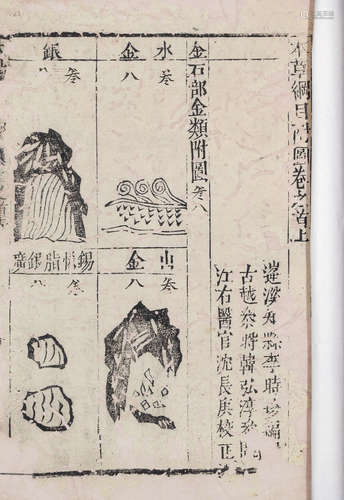 本草綱目附圖卷之首上
蓬溪知縣李時珍編
古越參將韓弘濟
江右醫官沈長庚校正
金石部金類附圖卷八
水金
卷八
山金
卷八
銀
卷八
錫恡脂銀礦
卷八